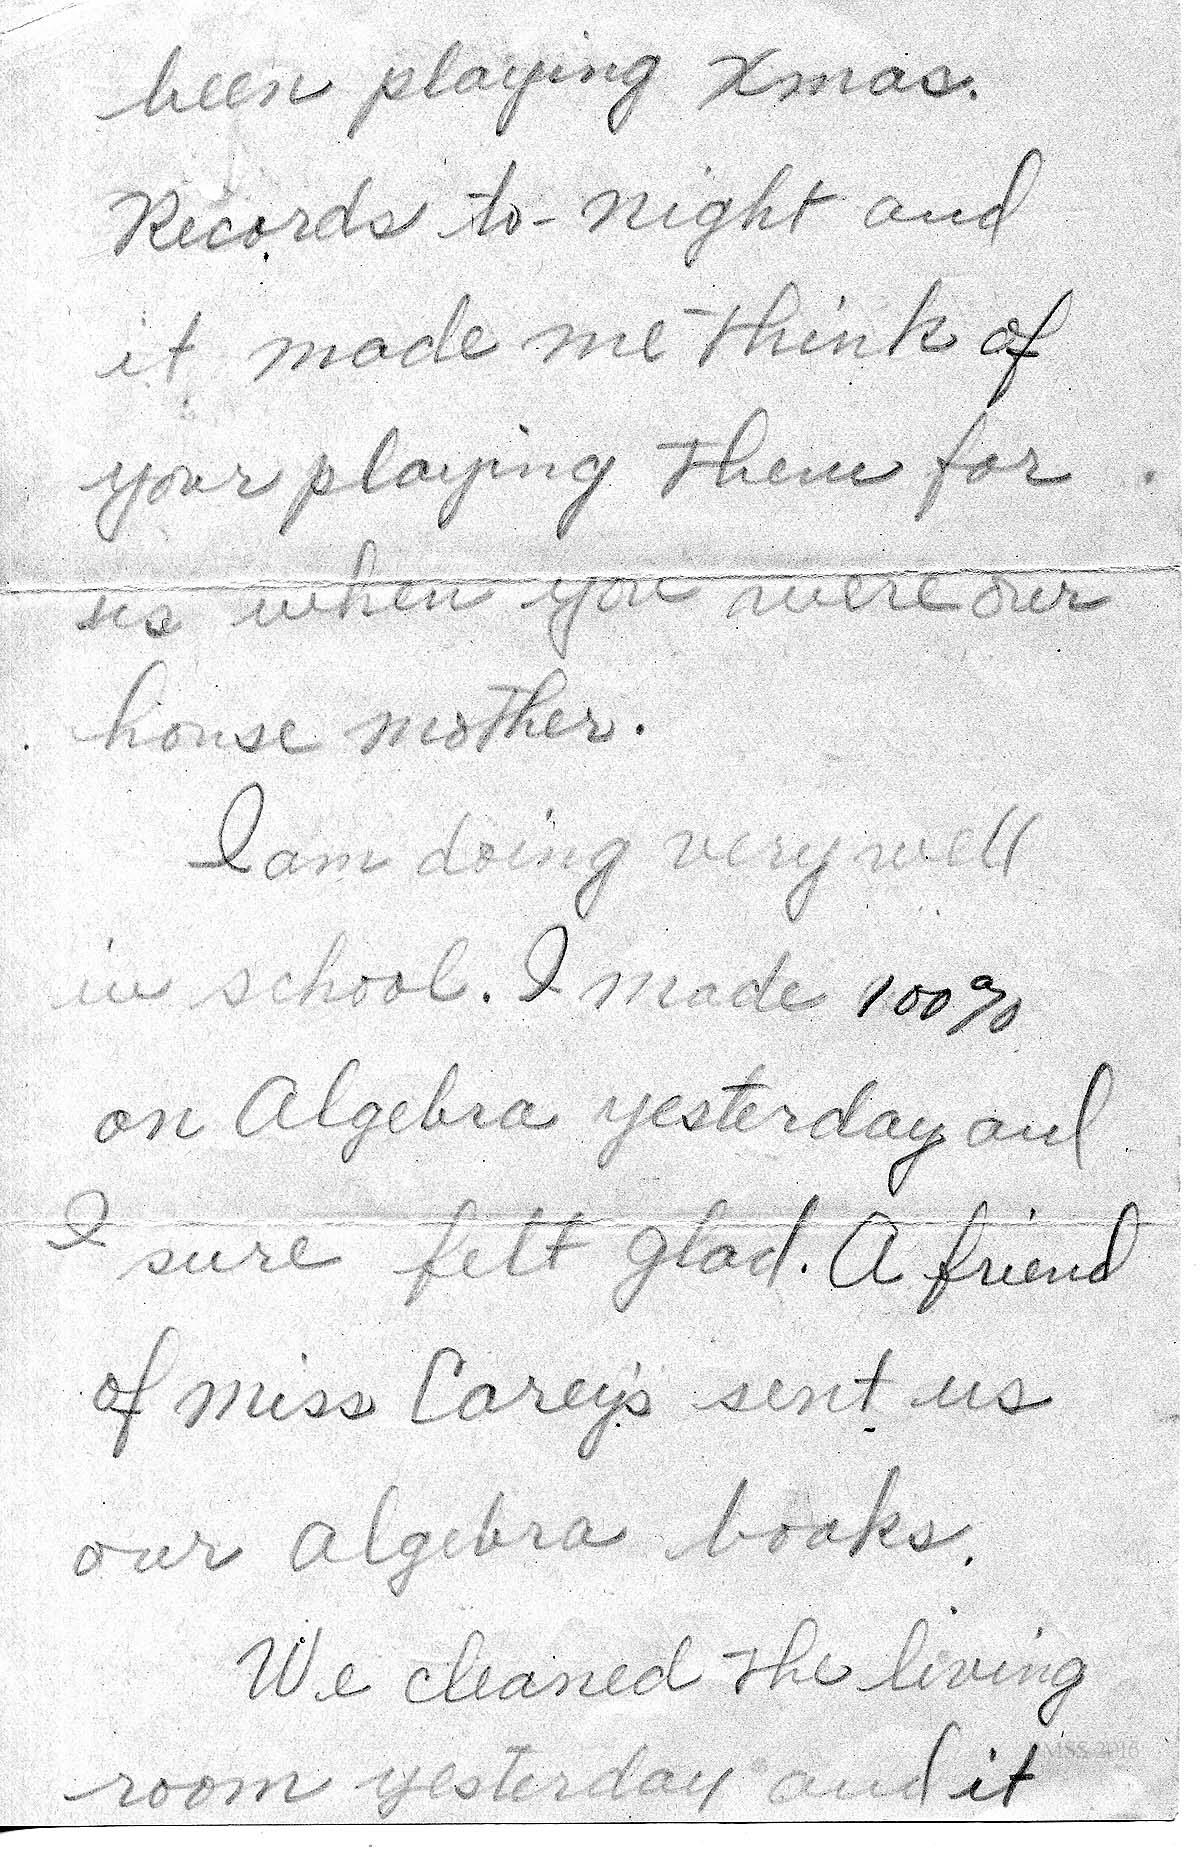 been playing Xmas.
Records to-night and
it made me think of
your playing them for
us when you were our
house mother.
I am doing very well
in school. I made 100%
on Algebra yesterday and
I sure felt glad. A friend
of miss Carey's sent us
our algebra books.
We cleaned the living
MSS 2016
room yesterday and it